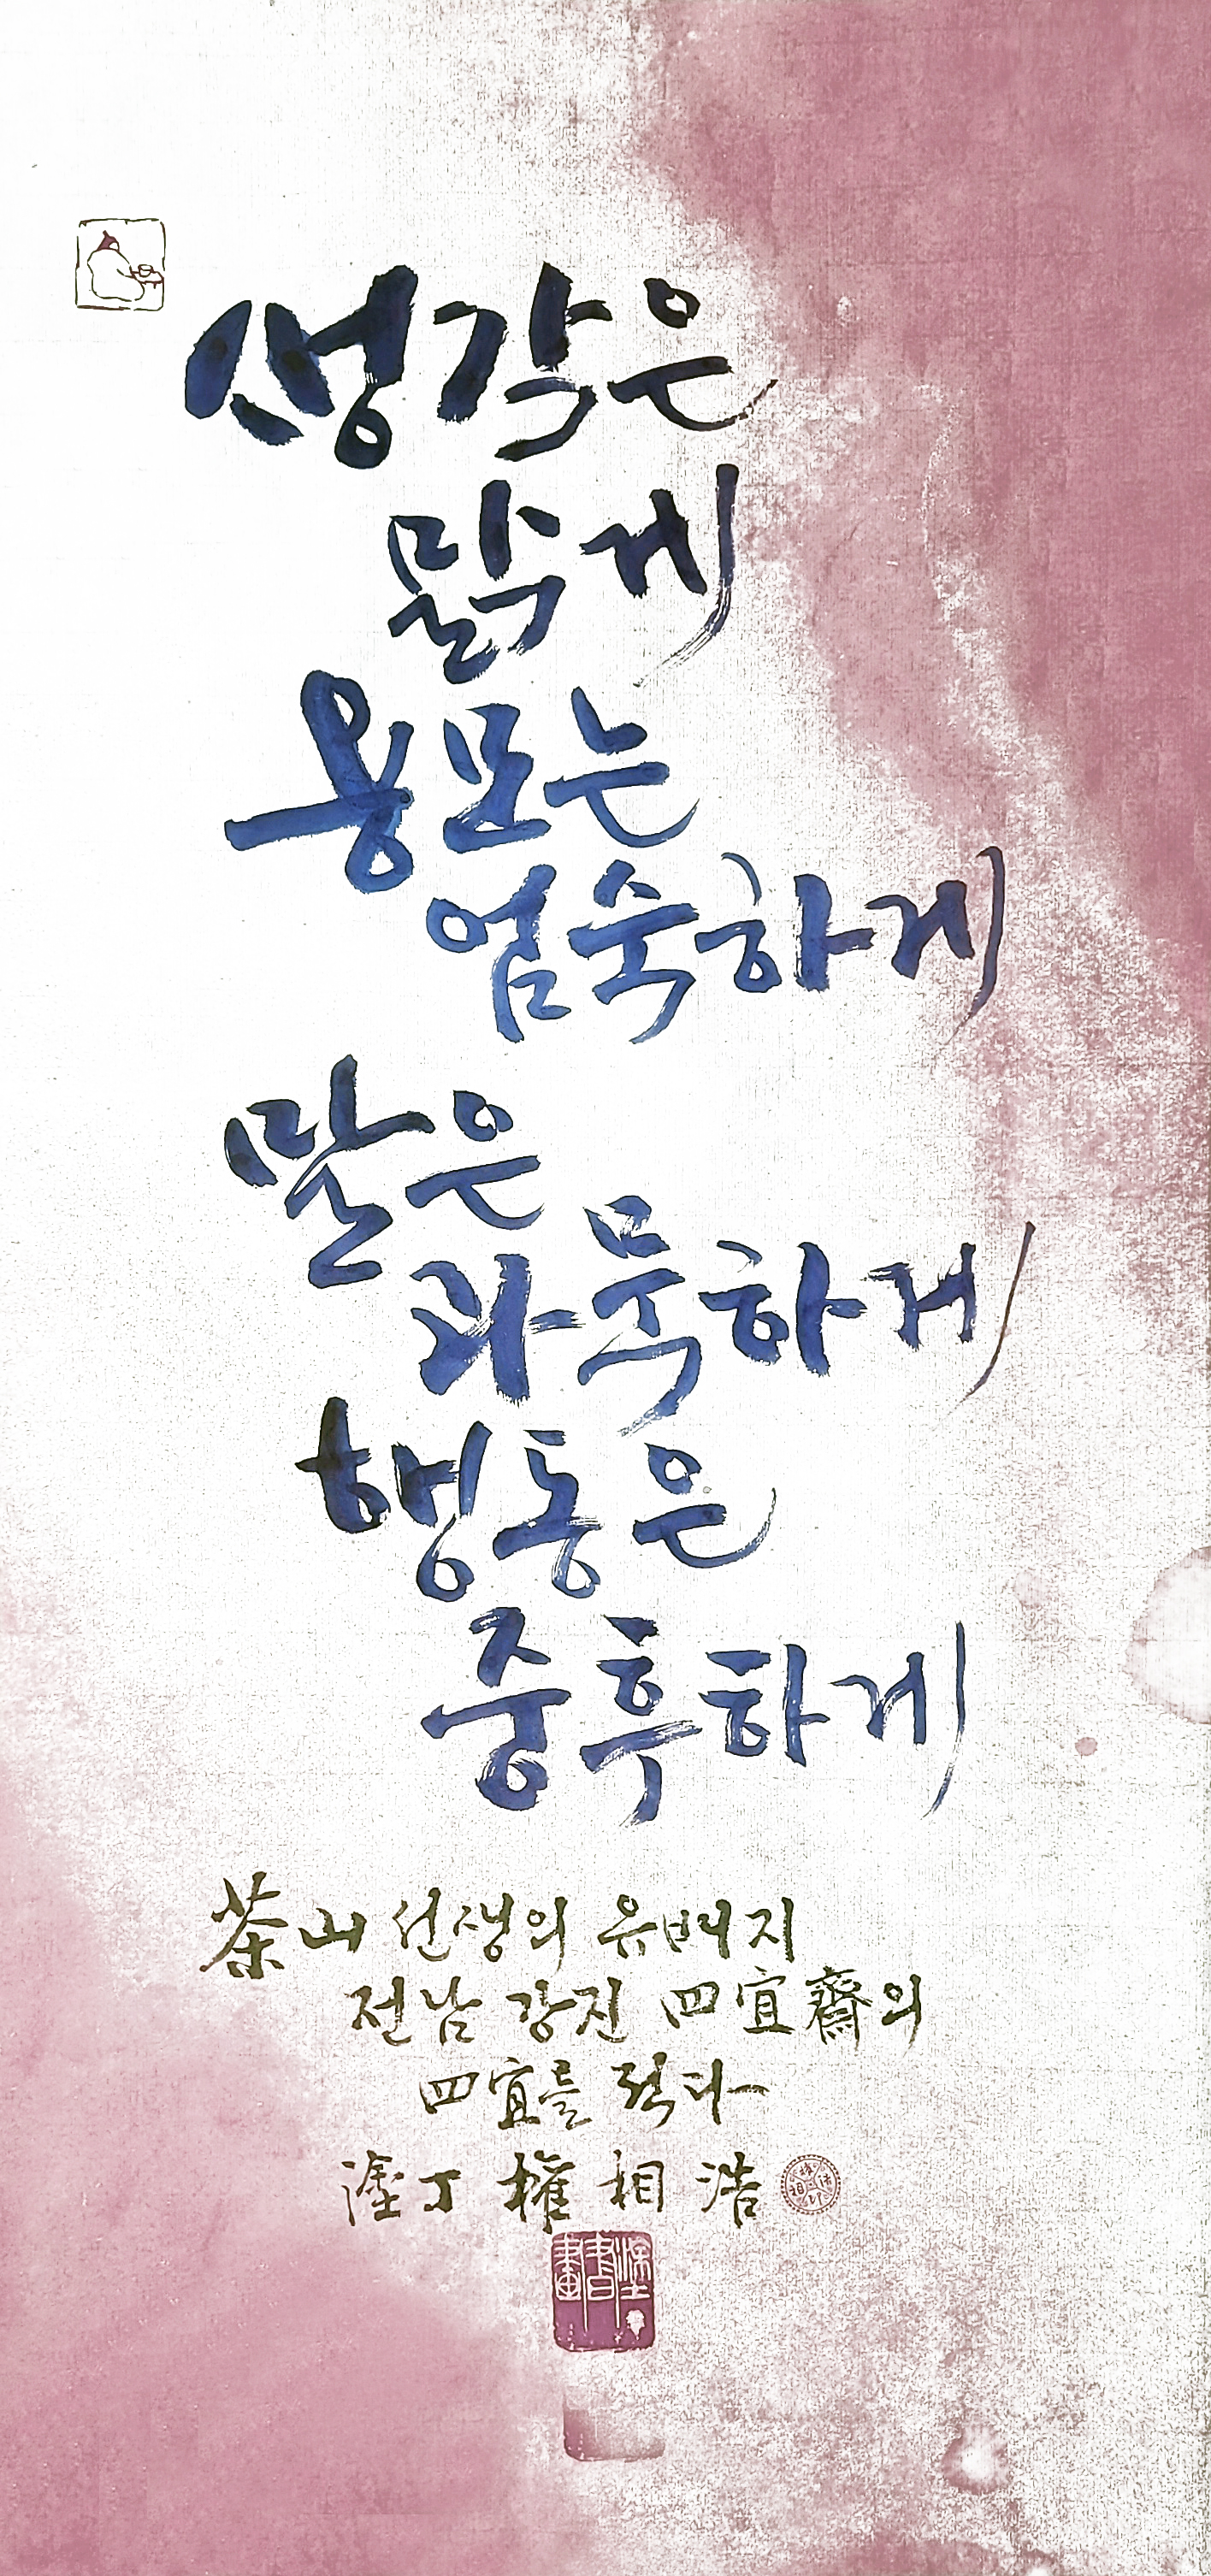 생각은
맑게
용모는
엄숙하게
말은
과묵하게
행동은
중후하게
茶山 선생의 유배지
전남 강진 四宜齋의
四宜를 적다
丁 權相浩
書畫